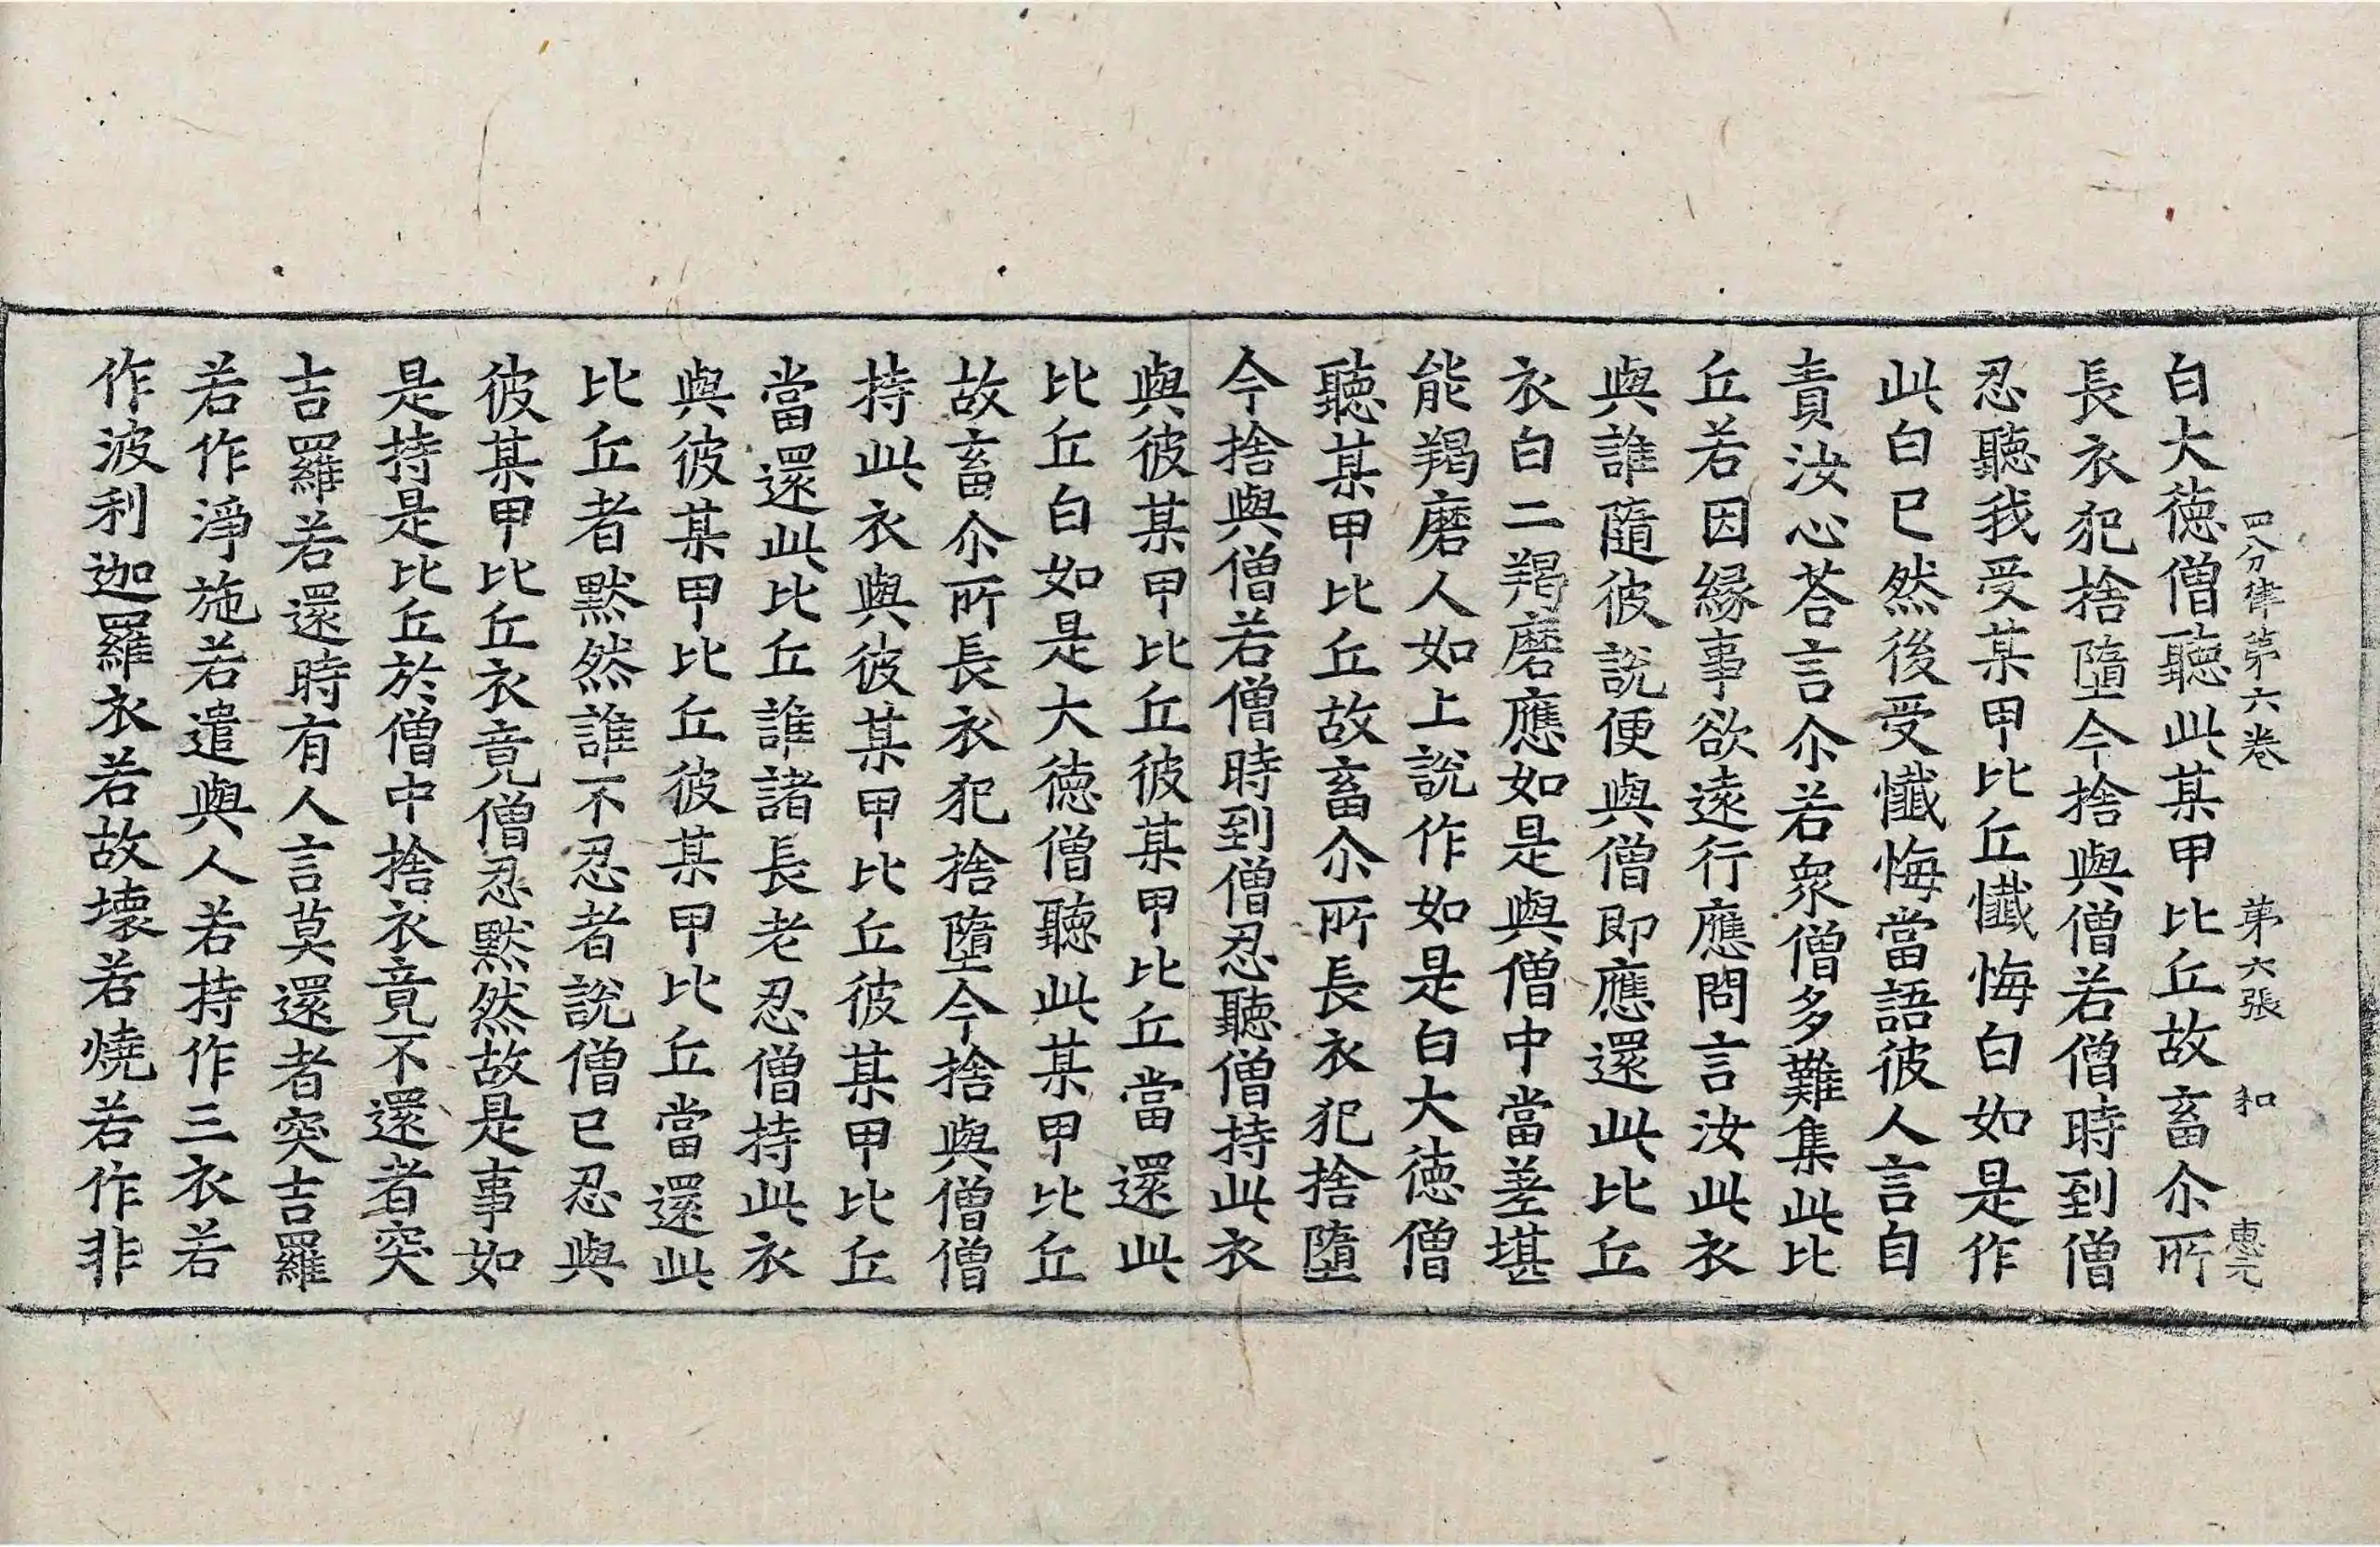 四分律第六卷 第六張 和 惠元
白大徳僧聽此某甲比丘故畜尒所
長衣犯捨墮今捨與僧若僧時到僧
忍聽我受某甲比丘懺悔白如是作
此白已然後受懺悔當語彼人言自
責汝心荅言尒若衆僧多難集此比
丘若因縁事欲遠行應問言汝此衣
與誰隨彼說便與僧即應還此比丘
衣白二羯磨應如是與僧中當差堪
能羯磨人如上說作如是白大徳僧
聽某甲比丘故畜尒所長衣犯捨墮
今捨與僧若僧時到僧忍聽僧持此衣
與彼某甲比丘彼某甲比丘當還此
比丘白如是大徳僧聽此某甲比丘
故畜尒所長衣犯捨墮今捨與僧僧
持此衣與彼某甲比丘彼某甲比丘
當還此比丘誰諸長老忍僧持此衣
與彼某甲比丘彼某甲比丘當還此
比丘者默然誰不忍者說僧已忍與
彼某甲比丘衣竟僧忍默然故是事如
是持是比丘於僧中捨衣竟不還者突
吉羅若還時有人言莫還者突吉羅
若作淨施若遣與人若持作三衣若
作波利迦羅衣若故壞若燒若作非